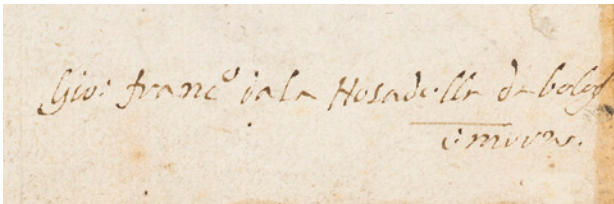 Gio: franc.º iala Nosadella da bolog
è muore.